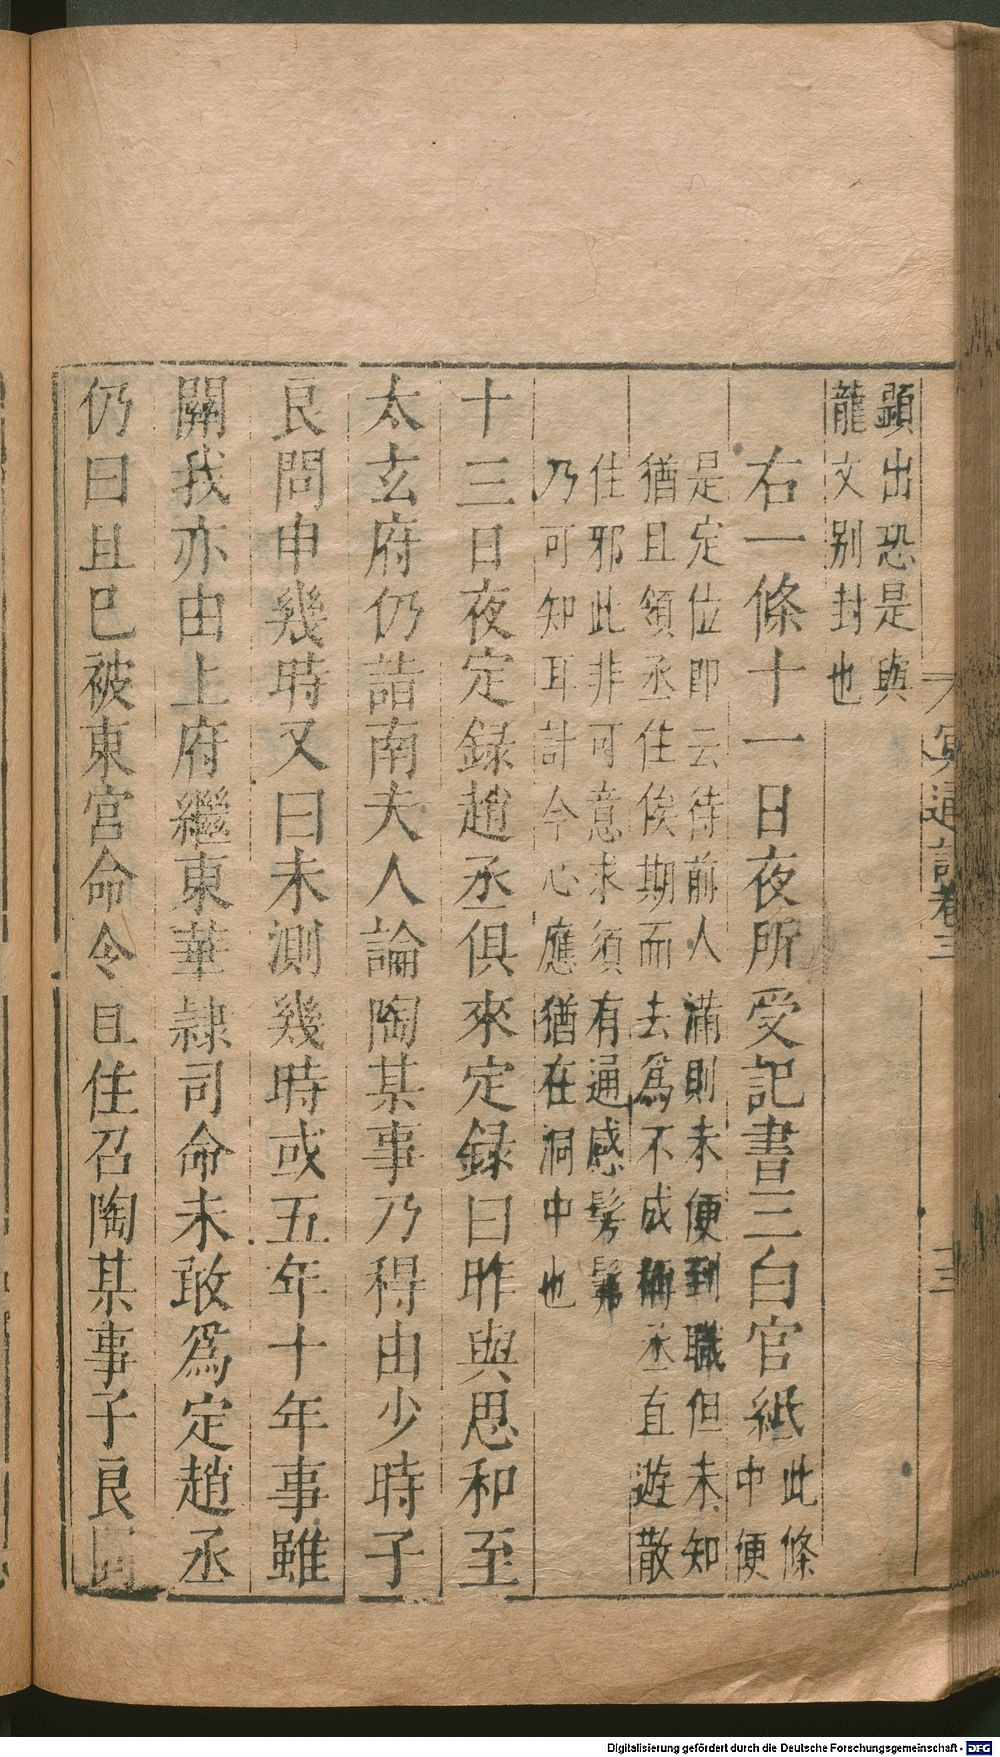 冥通記卷三
十三
顯出恐是與
龍文别封也
右一條十一日夜所受記書三白官紙此條
中便
是定位即云待前人滿則未便到職但未知
猶且領丞住俟期而去爲不成稱丞直遊散
住邪此非可意求須有通感髣髴
乃可知耳計今心應猶在洞中也
十三日夜定録趙丞俱來定録曰昨與思和至
太玄府仍詣南夫人論陶某事乃得由少時子
良問申幾時又曰未測幾時或五年十年事雖
關我亦由上府繼東華隷司命未敢爲定趙丞
仍曰且已被東宮命令且住召陶某事子良
Digitalisierung gefördert durch die Deutsche Forschungsgemeinschaft - DFG